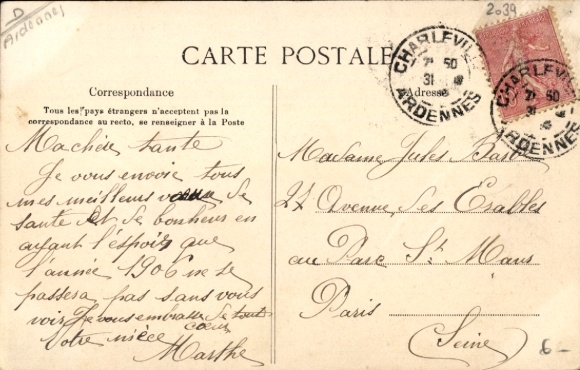 D
Ardennes
2039
CARTE POSTALE
Correspondance
Tous les pays étrangers n'acceptent pas la
correspondance au recto, se renseigner à la Poste
Ma chère tante
Je vous envoie tous
mes meilleurs vœux de
santé et de bonheur en
ayant l'espoir que
l'année 1906 ne se
passera pas sans vous
voir Je vous embrasse de tout
cœur
Votre nièce
Marthe
CHARLEVILLE
7 50
31
ARDENNES
CHARLEVILLE
7 50
31
ARDENNES
Adresse
Madame Jules
27 Avenue des Érables
au Parc St Maur
Paris
(Seine)
6-